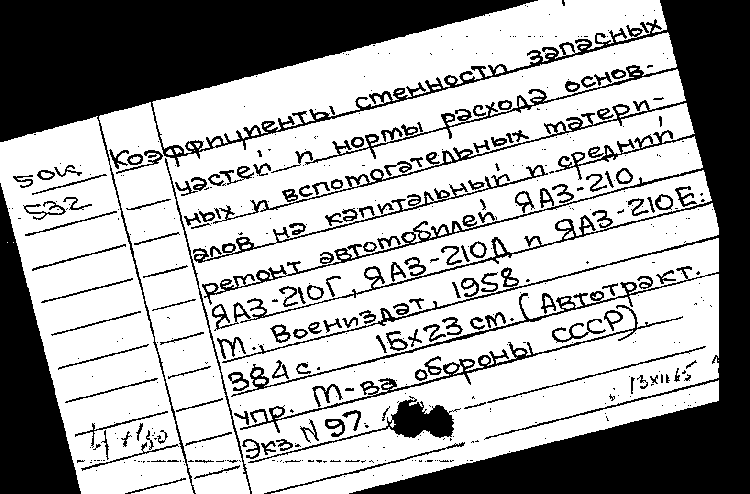 50к
532
Коэффициенты стенности запасных
частей и нормы расхода основ-
ных и вспомогательных матери-
алов на капитальный и средний
ремонт автомобилей ЯАЗ-210,
ЯАЗ-210Г, ЯАЗ-210Д и ЯАЗ-210Е.
М., Воениздат, 1958.
384 с. 15x23 см. (Автотракт.
упр. М-ва обороны СССР).
Экз. N 97.